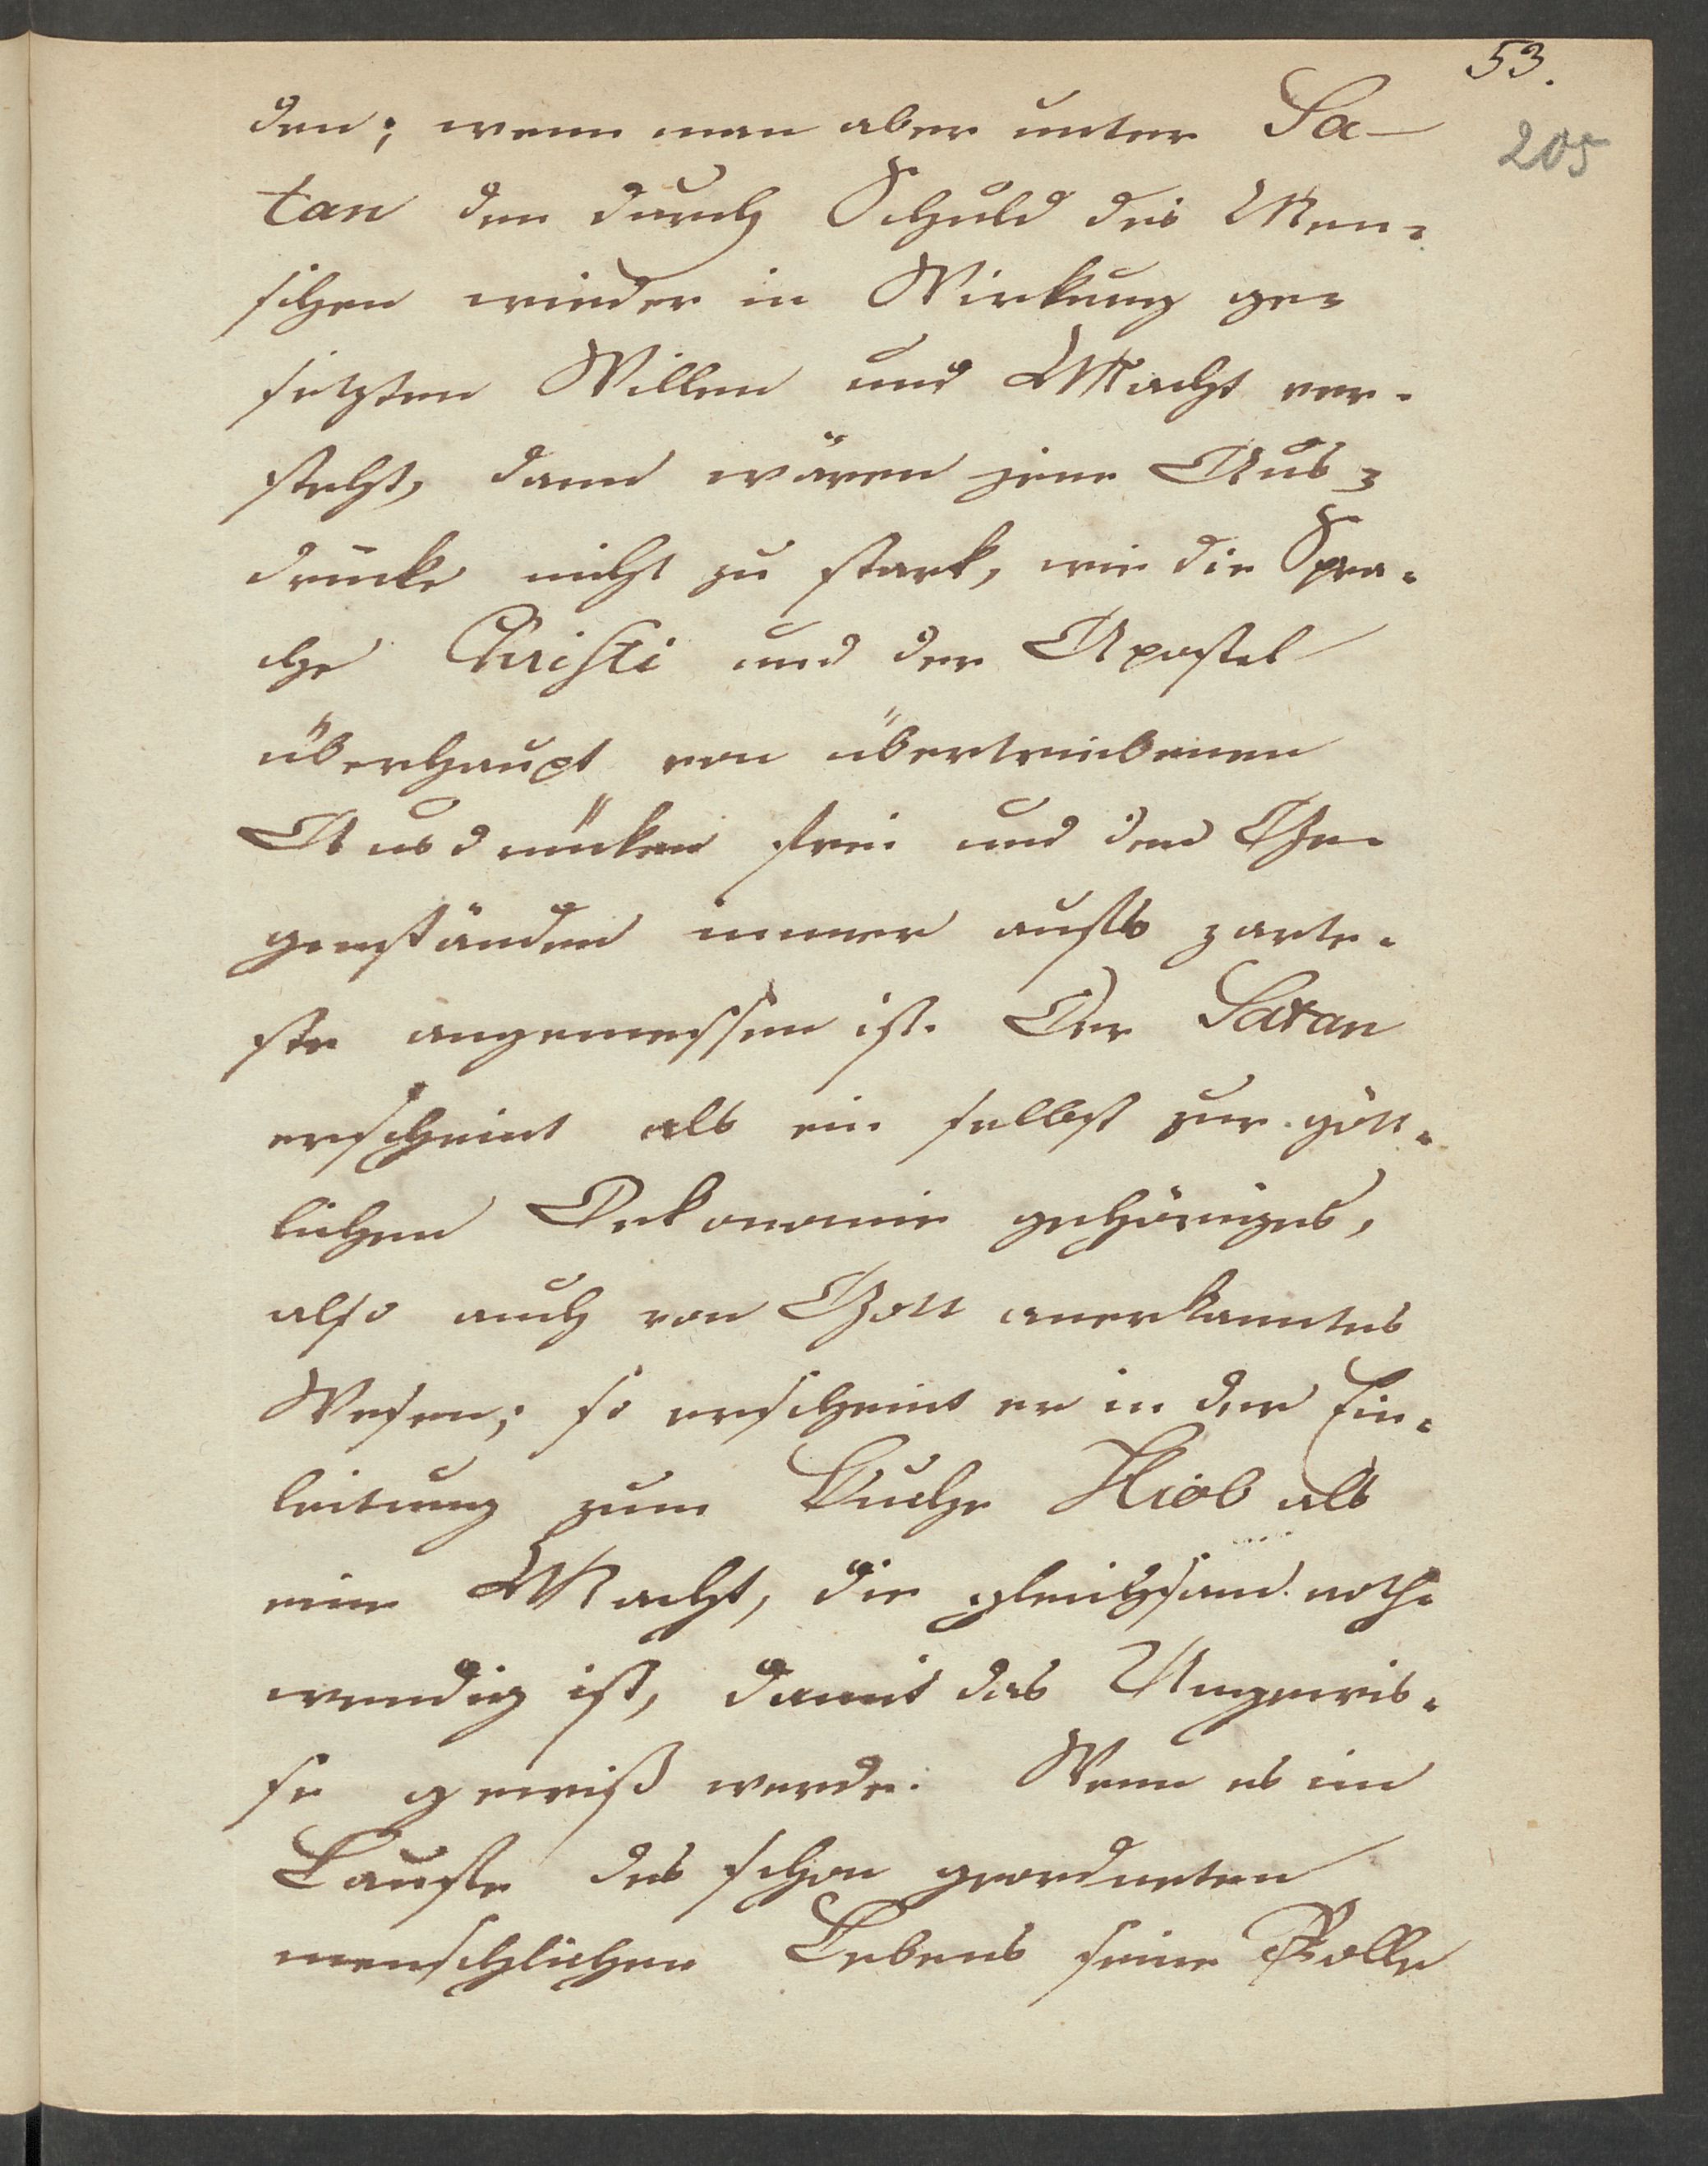 53.
205
den; wenn man aber unter Sa-
tan den durch Schuld des Men-
schen wieder in Wirkung ge-
setzten Willen und Macht ver-
steht, dann wären jene Aus-
drücke nicht zu stark, wie die Spra-
che Christi und der Apostel
überhaupt von übertriebenen
Ausdrücken frei und den Ge-
genständen immer aufs zarte-
ste angemessen ist. Der Satan
erscheint als ein selbst zur gött-
lichen Oekonomie gehöriges,
also auch von Gott anerkanntes
Wesen; so erscheint er in der Ein-
leitung zum Buche Hiob als
eine Macht, die gleichsam noth-
wendig ist, damit das Ungewis-
se gewiß werde. Wenn es im
Laufe des schon geordneten
menschlichen Lebens seine Rolle